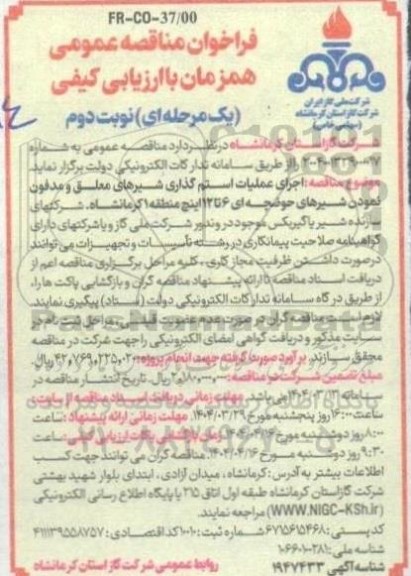 FR-CO-37/00
شرکت ملی گاز ایران
شرکت گاز استان کرمانشاه
فراخوان مناقصه عمومی
همزمان با ارزیابی کیفی
(یک مرحله ای) نوبت دوم
شرکت گاز استان کرمانشاه در نظر دارد مناقصه عمومی به شماره
را از طریق سامانه تدارکات الکترونیکی دولت برگزار نماید
موضوع مناقصه: اجرای عملیات استم گذاری شیرهای معلق و مدفون
نمودن شیرهای حوضچه ای ۶ تا ۱۲ اینچ منطقه ۱ کرمانشاه. شرکتهای
سازنده شیر یا گیربکس موجود در وندور شرکت ملی گاز و یا شرکتهای دارای
گواهینامه صلاحیت پیمانکاری در رشته تأسیسات و تجهیزات می توانند
درصورت داشتن ظرفیت مجاز کاری، کلیه مراحل برگزاری مناقصه اعم از
دریافت اسناد مناقصه تا ارائه پیشنهاد مناقصه گران و بازگشایی پاکت ها را،
از طریق درگاه سامانه تدارکات الکترونیکی دولت (ستاد) پیگیری نمایند.
لازم است مناقصه گران در صورت عدم عضویت قبلی، مراحل ثبت نام در
سایت مذکور و دریافت گواهی امضای الکترونیکی را جهت شرکت در مناقصه
محقق سازند. برآورد صورت گرفته جهت انجام پروژه: ریال
مبلغ تضمین شرکت در مناقصه: ریال. تاریخ انتشار مناقصه در
سامانه می باشد. مهلت زمانی دریافت اسناد مناقصه از سایت:
ساعت ۱۶:۰۰ روز پنجشنبه مورخ ۱۴۰۴/۰۳/۲۹. مهلت زمانی ارائه پیشنهاد: ساعت
۸:۰۰ روز دوشنبه مورخ زمان بازگشایی پاکات ارزیابی کیفی: ساعت
۹:۳۰ روز دوشنبه مورخ ۱۴۰۴/۰۴/۱۶. مناقصه گران می توانند جهت کسب
اطلاعات بیشتر به آدرس: کرمانشاه، میدان آزادی، ابتدای بلوار شهید بهشتی
شرکت گاز استان کرمانشاه طبقه اول اتاق ۲۱۵ یا پایگاه اطلاع رسانی الکترونیکی
(WWW.NIGC-KSh.ir) مراجعه نمایند.
کد پستی: ۶۷۱۵۶۱۵۴۶۸ شماره ثبت: ۱۰۱۰ کد اقتصادی: ۴۱۱۱۳۹۵۵۸۷۵۷
شناسه ملی: ۱۰۶۶۰۱۰۲۸۱۰
شناسه آگهی ۱۹۴۷۴۳۳
روابط عمومی شرکت گاز استان کرمانشاه